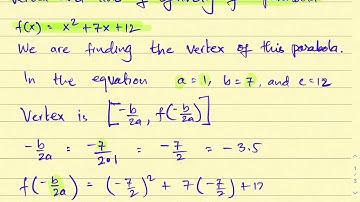 f(x) = x² + 7x + 12
We are finding the vertex of this parabola.
In the equation a = 1, b = 7, and c = 12
Vertex is [-b/2a, f(-b/2a)]
-b/2a = -7/2·1 = -7/2 = -3.5
f(-b/2a) = (-7/2)² + 7(-7/2) + 12